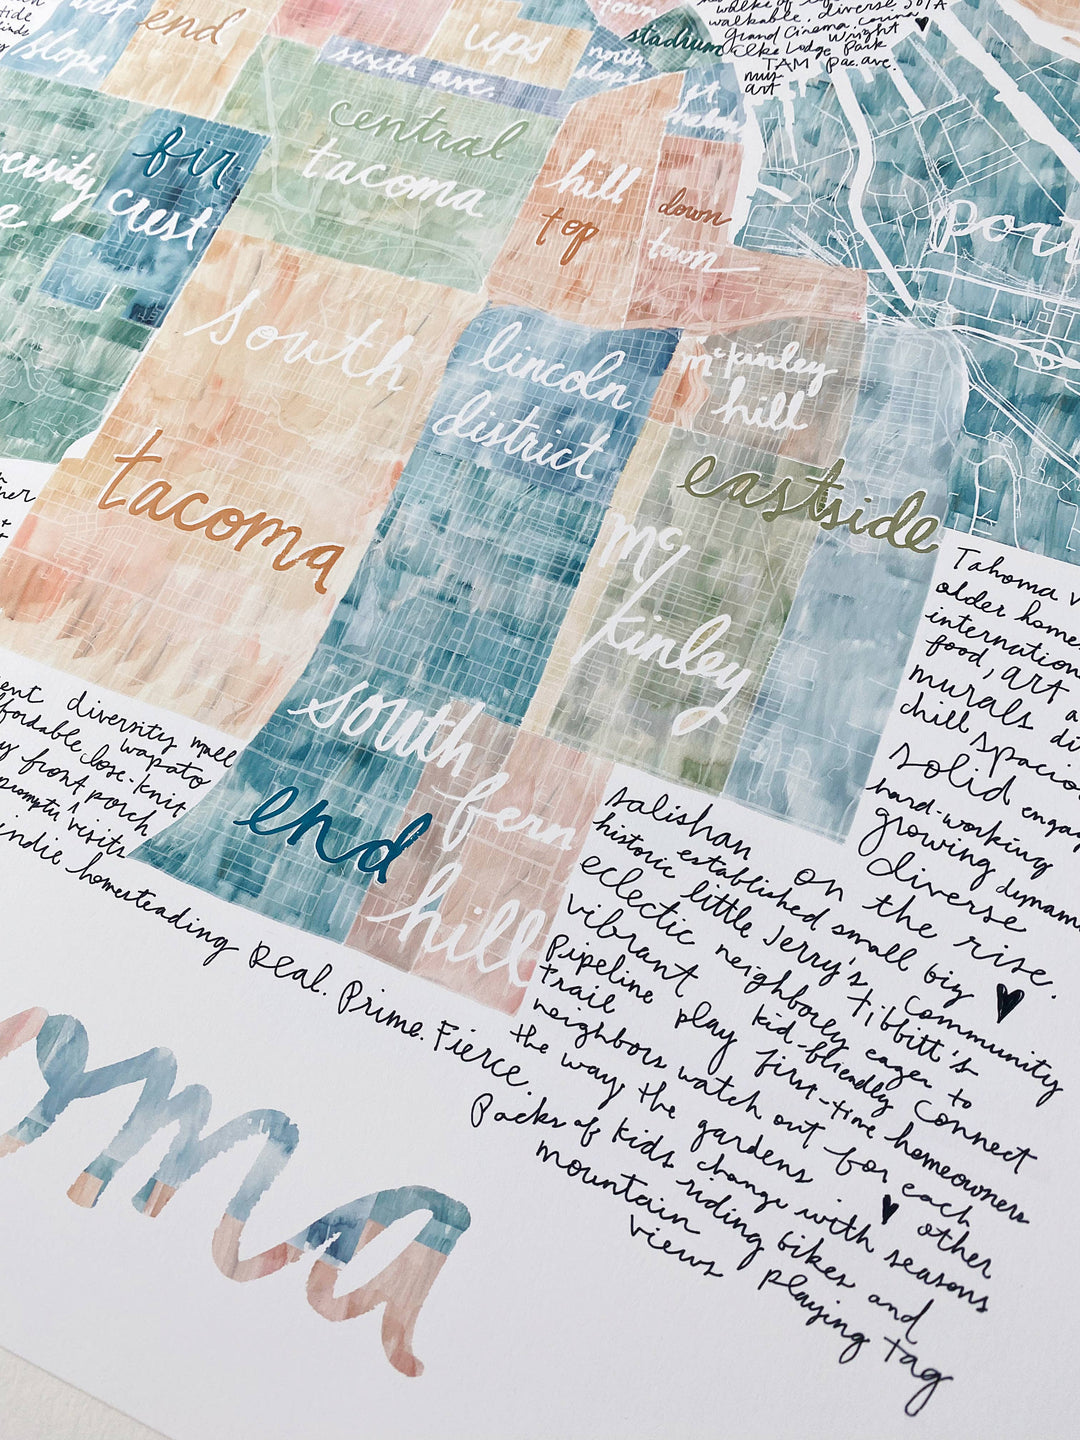 west
end
slope
ups
sixth ave.
town
north
slope
stadium
st
helens
walkable, diverse, SOTA
Grand Cinema, corina,
Elks Lodge, Wright
Park
TAM pac. ave.
art
central
tacoma
fir
crest
hill
top
down
town
port
south
tacoma
lincoln
district
mckinley
hill
eastside
mc
kinley
south
end
fern
hill
diversity mall
wapato
close-knit
front porch
visits
indie homesteading Real. Prime. Fierce.
Tahoma
older homes
food, art
murals
chill spacio
solid engag
hard-working
growing dynam
diverse
salishan on the rise.
historic established small big ♥
eclectic little Jerry's community
vibrant neighborly Tibbitt's
Pipeline kid-friendly eager to
trail play first-time connect
neighbors watch out for homeowners
the way the gardens each other
Packs of kids change with seasons
mountain riding bikes and
views playing tag
oma